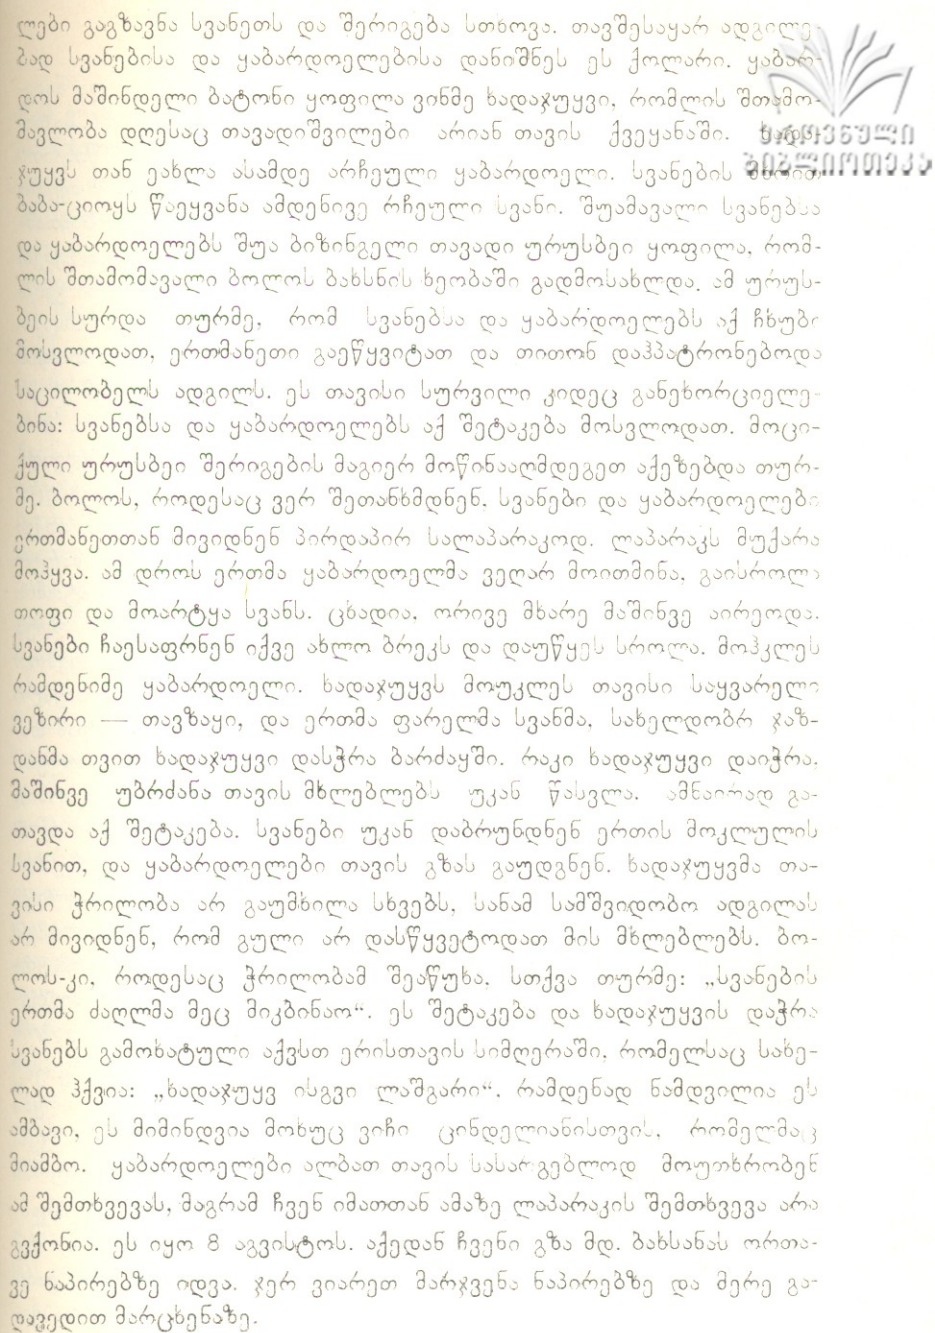 ლები გაგზავნა სვანეთს და შერიგება სთხოვა. თავშესაყარ ადგილე-
ბად სვანებისა და ყაბარდოელებისა დანიშნეს ეს ქოლარი. ყაბარ-
დოს მაშინდელი ბატონი ყოფილა ვინმე ხადაჯუყვი, რომლის შთამო-
მავლობა დღესაც თავადიშვილები არიან თავის ქვეყანაში. ხადა-
ჯუყვს თან ეახლა ასამდე არჩეული ყაბარდოელი. სვანების მხრით
ბაბა-ციოყს წაეყვანა ამდენივე რჩეული სვანი. შუამავალი სვანებსა
და ყაბარდოელებს შუა ბიზინგელი თავადი ურუსბეი ყოფილა, რომ-
ლის შთამომავალი ბოლოს ბახსნის ხეობაში გადმოსახლდა. ამ ურუს-
ბეის სურდა თურმე, რომ სვანებსა და ყაბარდოელებს აქ ჩხუბი
მოსვლოდათ, ერთმანეთი გაეწყვიტათ და თითონ დაჰპატრონებოდა
საცილობელს ადგილს. ეს თავისი სურვილი კიდეც განეხორციელე-
ბინა: სვანებსა და ყაბარდოელებს აქ შეტაკება მოსვლოდათ. მოცი-
ქული ურუსბეი შერიგების მაგიერ მოწინააღმდეგეთ აქეზებდა თურ-
მე. ბოლოს, როდესაც ვერ შეთანხმდნენ, სვანები და ყაბარდოელები
ერთმანეთთან მივიდნენ პირდაპირ სალაპარაკოდ. ლაპარაკს მუქარა
მოჰყვა. ამ დროს ერთმა ყაბარდოელმა ვეღარ მოითმინა, გაისროლა
თოფი და მოარტყა სვანს. ცხადია, ორივე მხარე მაშინვე აირეოდა.
სვანები ჩაესაფრნენ იქვე ახლო ბრეკს და დაუწყეს სროლა. მოჰკლეს
რამდენიმე ყაბარდოელი. ხადაჯუყვს მოუკლეს თავისი საყვარელი
ვეზირი — თავზაყი, და ერთმა ფარელმა სვანმა, სახელდობრ ჯაზ-
დანმა თვით ხადაჯუყვი დასჭრა ბარძაყში. რაკი ხადაჯუყვი დაიჭრა.
მაშინვე უბრძანა თავის მხლებლებს უკან წასვლა. ამნაირად გა-
თავდა აქ შეტაკება. სვანები უკან დაბრუნდნენ ერთის მოკლულის
სვანით, და ყაბარდოელები თავის გზას გაუდგნენ. ხადაჯუყვმა თა-
ვისი ჭრილობა არ გაუმხილა სხვებს, სანამ სამშვიდობო ადგილას
არ მივიდნენ, რომ გული არ დასწყვეტოდათ მის მხლებლებს. ბო-
ლოს-კი, როდესაც ჭრილობამ შეაწუხა, სთქვა თურმე: „სვანების
ერთმა ძაღლმა მეც მიკბინაო“. ეს შეტაკება და ხადაჯუყვის დაჭრა
სვანებს გამოხატული აქვსთ ერისთავის სიმღერაში, რომელსაც სახე-
ლად ჰქვია: „ხადაჯუყვ ისგვი ლაშგარი“. რამდენად ნამდვილია ეს
ამბავი, ეს მიმინდვია მოხუც ვიჩი ცინდელიანისთვის, რომელმაც
მიამბო. ყაბარდოელები ალბათ თავის სასარგებლოდ მოუთხრობენ
ამ შემთხვევას, მაგრამ ჩვენ იმათთან ამაზე ლაპარაკის შემთხვევა არა
გვქონია. ეს იყო 8 აგვისტოს. აქედან ჩვენი გზა მდ. ბახსანას ორთა-
ვე ნაპირებზე იდვა. ჯერ ვიარეთ მარჯვენა ნაპირებზე და მერე გა-
დავედით მარცხენაზე.
ეროვნული
ბიბლიოთეკა